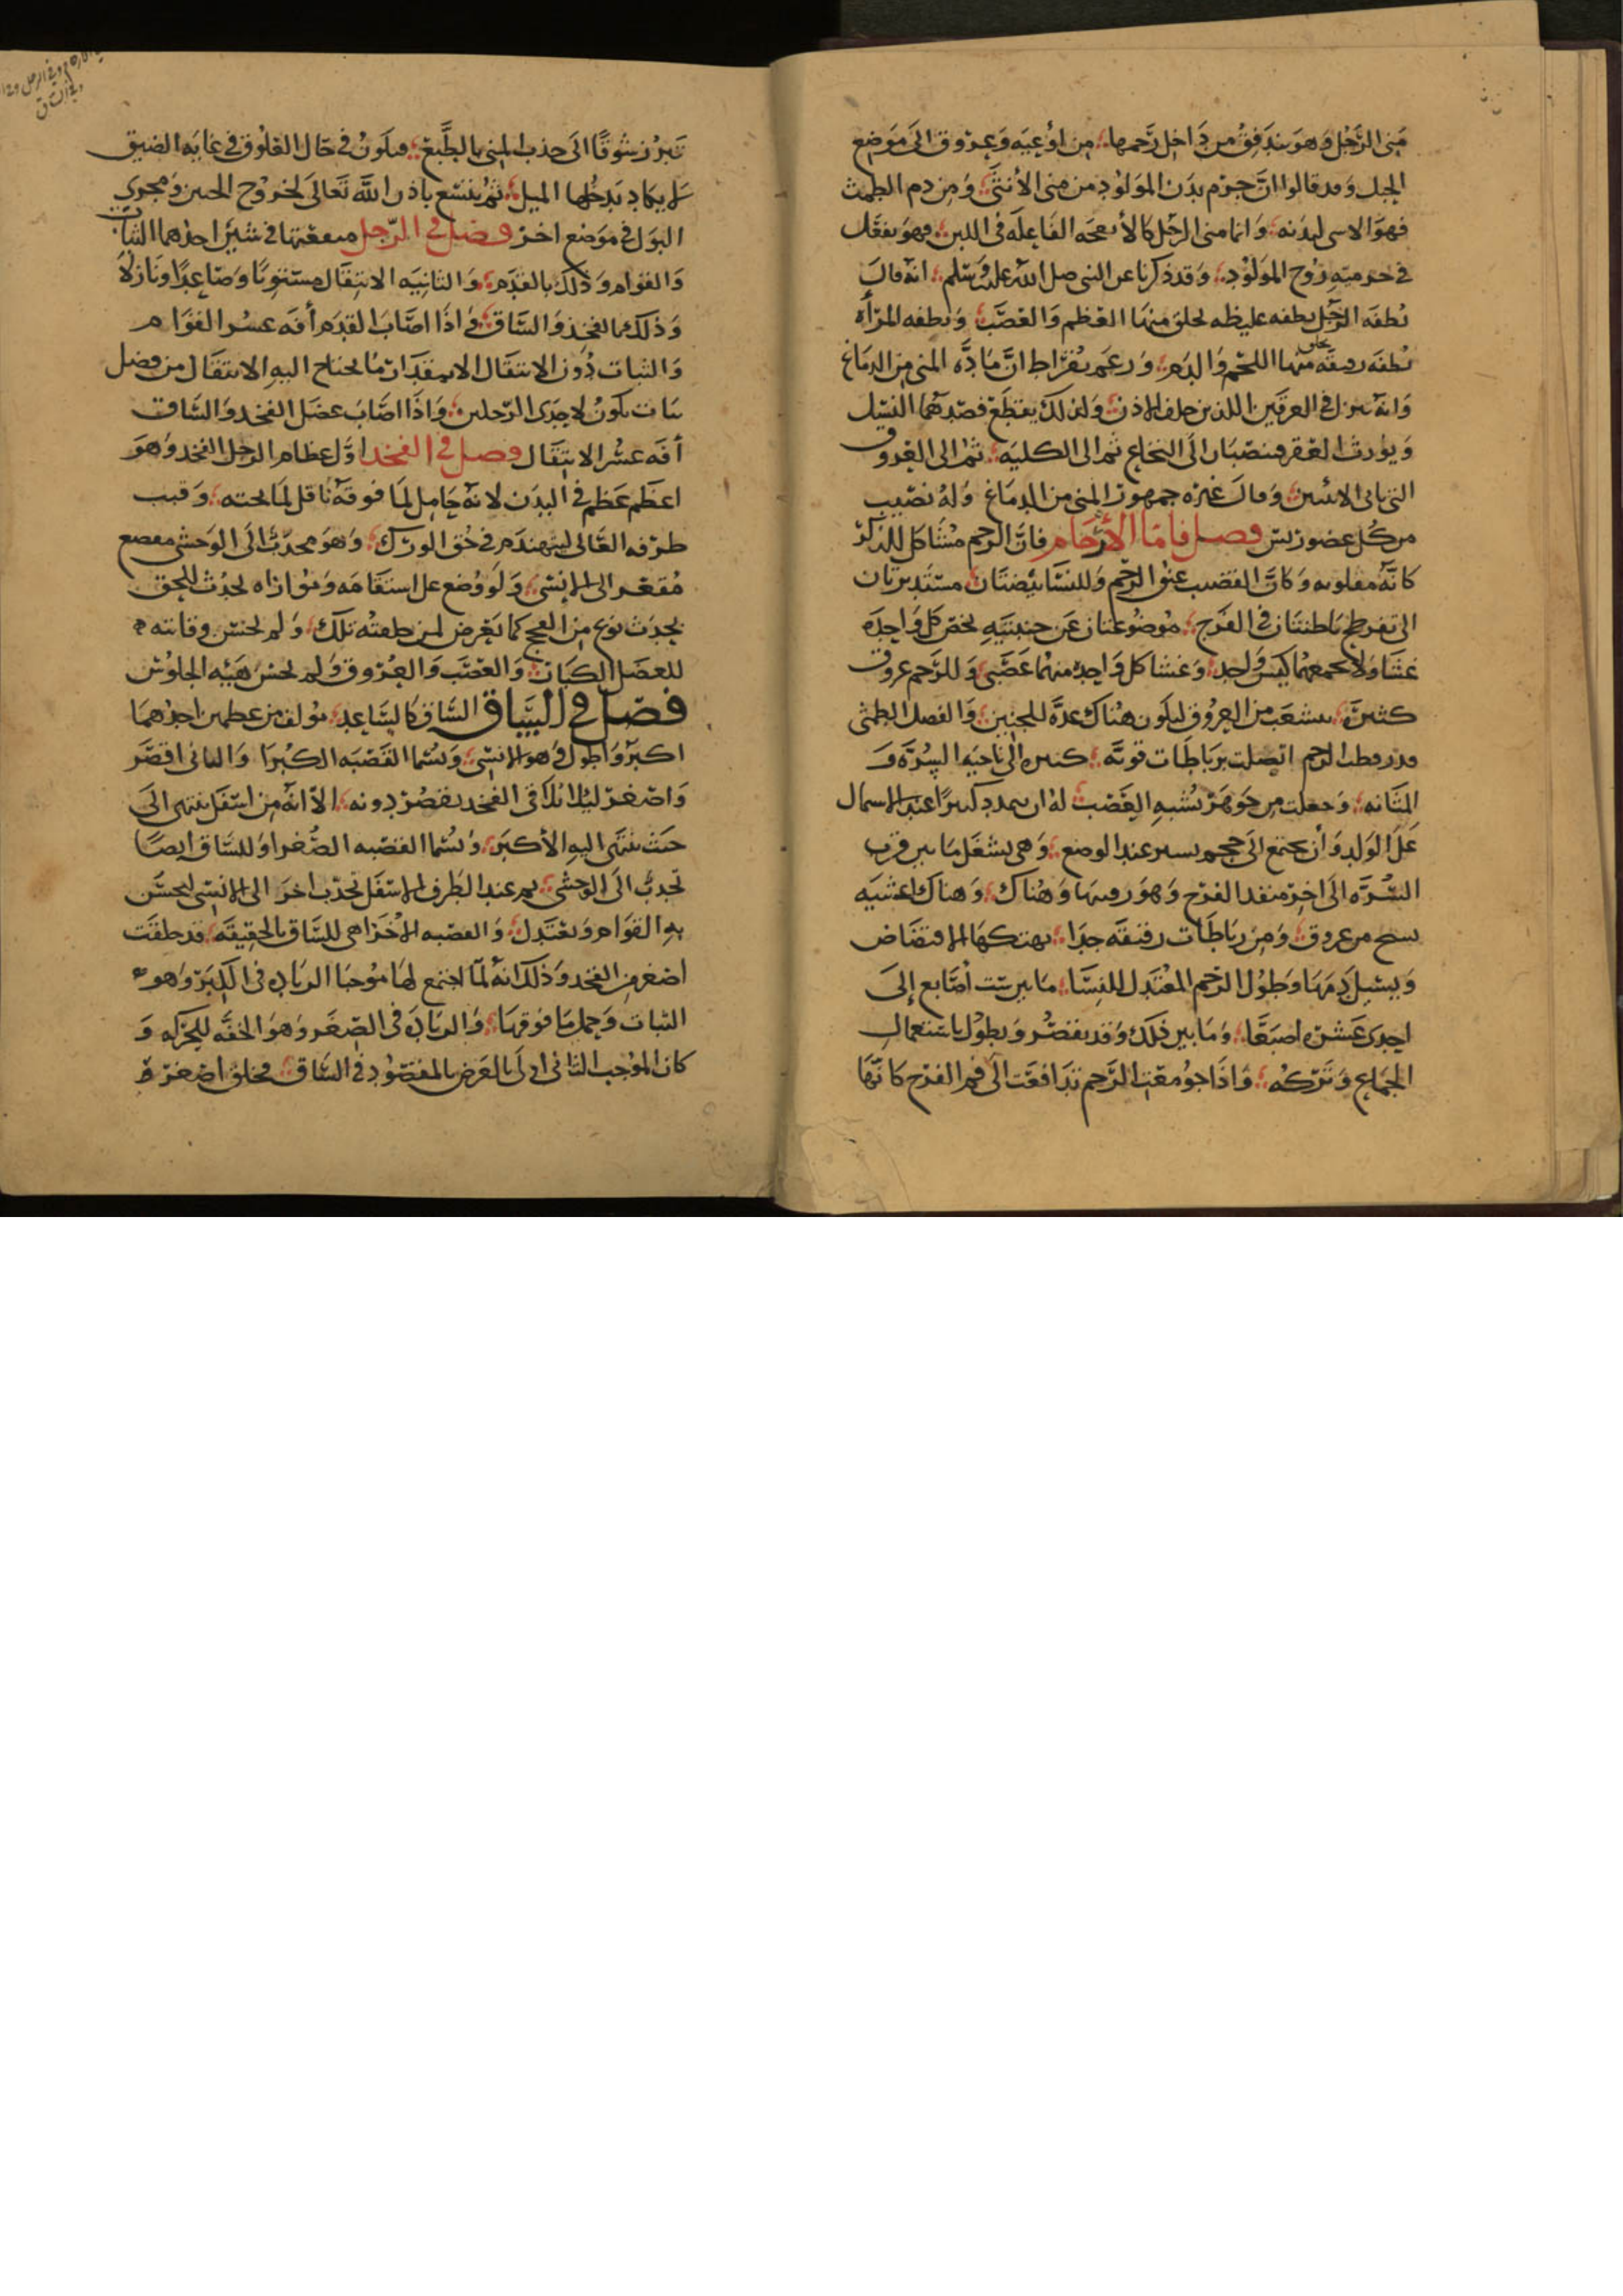 مني الرجل وهو يندفق من داخل رحمها من اوعيه وعروق الى موضع
الحبل وقد قالوا ان جرم بدن المولود من مني الأنثى ومن دم الطمث
فهو الاسى لبدنه وانما مني الرجل كالأنفحه الفاعله في اللبن فهو يفعل
في جرميته روح المولود وقد ذكرنا عن النبي صلى الله عليه وسلم انه قال
نطفه الرجل نطفه غليظه يخلق منها العظم والعصب ونطفه المرأه
نطفه رقيقه منها اللحم والدم وزعم بقراط ان ماده المني من الدماغ
وانه ينزل في العرقين اللذين خلف الاذن ولذلك يقطع فصدهما النسل
ويورث العقر فينصبان الى النخاع ثم الى الكليه ثم الى العروق
التي تاتي الانثيين وقال غيره جمهور المني من الدماغ وله نصيب
من كل عضو رئيس فصل فاما الأرحام فان الرحم مشاكل للذكر
كانه مقلوبه وكان القضيب عنق الرحم وللنسا بيضتان مستديرتان
الى تفرطح باطنتان في الفرج موضوعتان عن جنبتيه يخص كل واحده
غشا ولا يجمعهما كيس واحد وغشا كل واحد منهما عصبي وللرحم عروق
كثيره يتشعب من العروق ليكون هناك عده للجنين والفضل الطمثي
وقد ربطت الرحم اتصلت برباطات قويه كثيره الى ناحيه السره و
المثانه وجعلت من جوهر يشبه العصب له ان يتمدد كثيرا عند الاشتمال
على الولد وأن يجتمع الى حجم يسير عند الوضع وهي يشغل ما بين قرب
السره الى اخر منفذ الفرج وهو رقبتها وهناك وهناك اغشيه
ينسج من عروق ومن رباطات رقيقه جدا يهتكها الافتضاض
ويسيل دمها وطول الرحم المعتدل للنسا ما بين ست أصابع إلى
احدى عشره اصبعا وما بين ذلك وقد يقصر ويطول باستعمال
الجماع وتركه واذا جومعت الرحم تدافعت الى فم الفرج كانها
تبرز شوقا الى جذب المني بالطبع فيكون في حال العلوق في غايه الضيق
لا يكاد يدخلها الميل ثم يتسع باذن الله تعالى لخروج الجنين ومجرى
البول في موضع اخر فصل في الرجل منفعتها في شيئين احدهما الثبات
والقوام وذلك بالقدم والثانيه الانتقال مستويا وصاعدا ونازلا
وذلك بالفخذ والساق واذا اصاب القدم أفه عسر القوام
والثبات دون الانتقال الا بمقدار ما يحتاج اليه الانتقال من فضل
ثبات يكون لاحدى الرجلين واذا اصاب عضل الفخذ والساق
أفه عسر الانتقال فصل في الفخذ اول عظام الرجل الفخذ وهو
اعظم عظم في البدن لانه حامل لما فوقه ناقل لما تحته وقبب
طرفه العالي ليتهندم في حق الورك وهو محدب الى الوحشي
مقعر الى الانسي ولو وضع على استقامه وموازاه
يحدث نوع من الفحج كما يعرض لمن خلقته تلك ولم يحسن وقايته
للعضل الكبار والعصب والعروق ولم يحسن هيئه الجلوس
فصل في الساق الساق كالساعد مولف من عظمين احدهما
اكبر واطول وهو الانسي ويسما القصبه الكبرا والثاني اقصر
واصغر ليلاقي الفخذ يقصر دونه الا انه من اسفل ينتهى الى
حيث ينتهى اليه الأكبر ويسما القصبه الصغرا وللساق ايضا
تحدب الى الوحشي ثم عند الطرف الاسفل تحدب اخر الى الانسي ليحسن
به القوام ويعتدل والقصبه الاخرا هي للساق بالحقيقه قد خلقت
اصغر من الفخذ وذلك انه لما اجتمع لها موجبا الزياده في الكبر وهو
الثبات وحمل ما فوقها والزياده في الصغر وهو الخفه للحركه و
كان الموجب الثاني اولى بالغرض المقصود في الساق فخلق اصغر